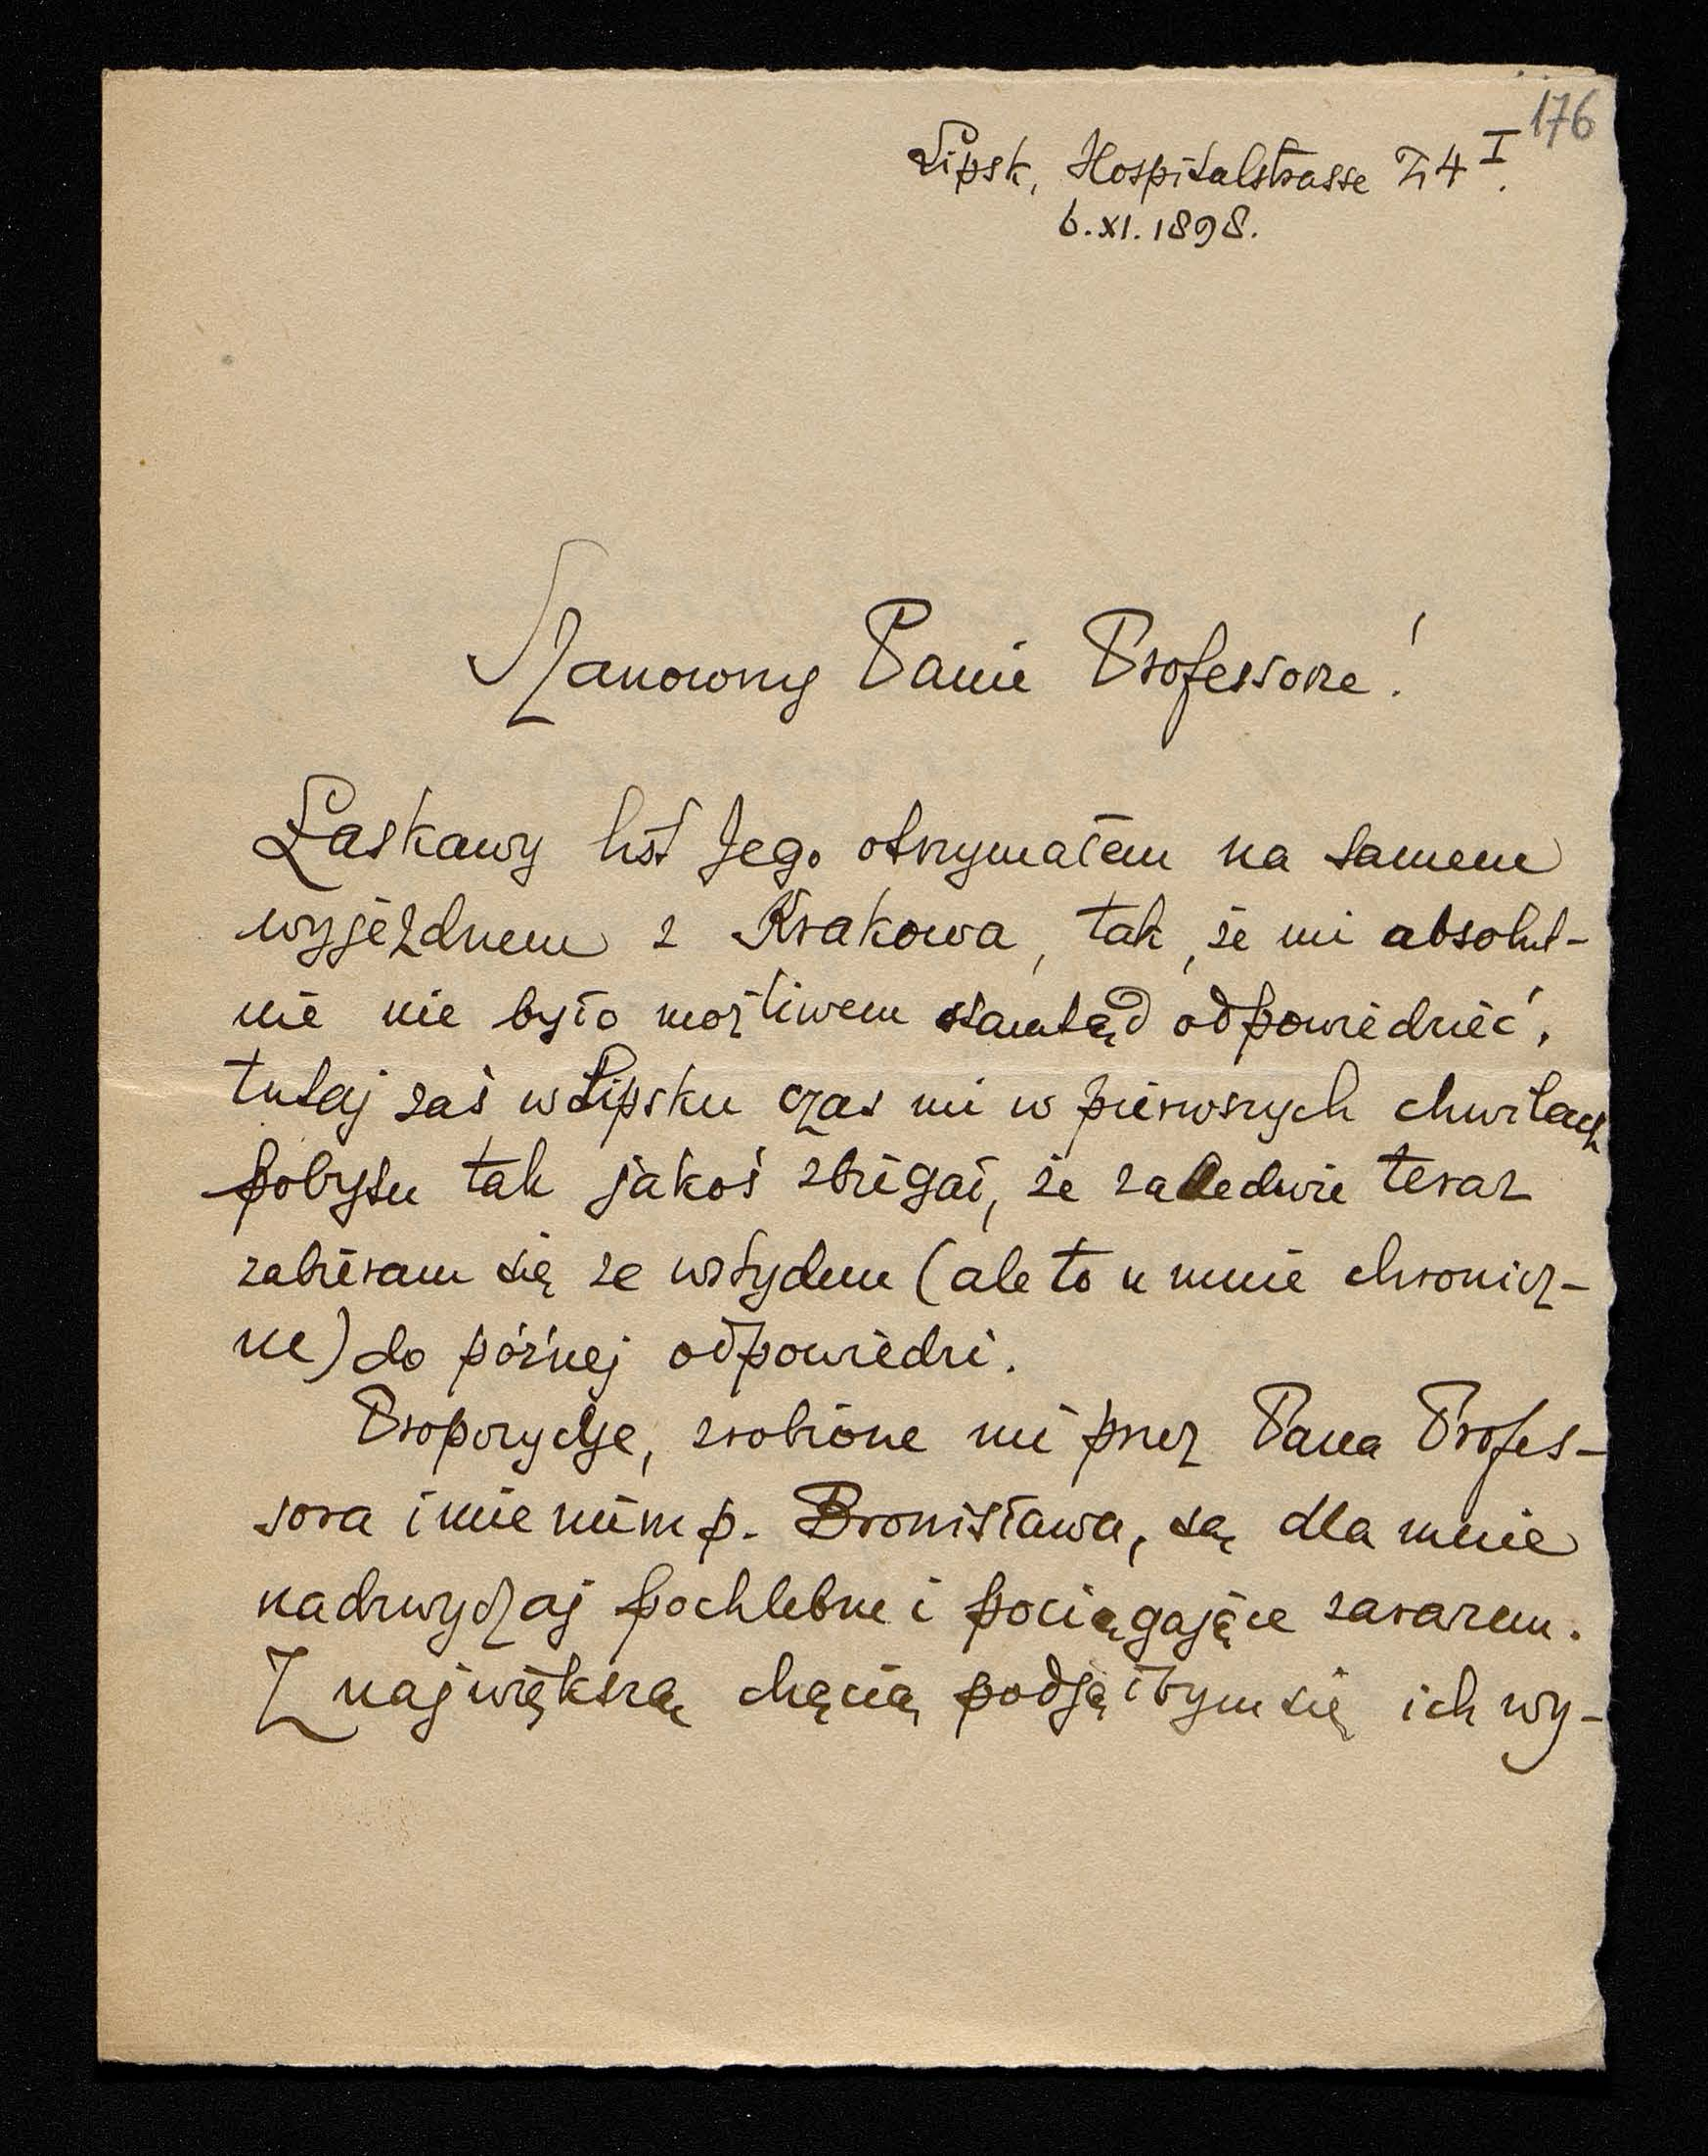 176
Lipsk, Hospitalstrasse 24 I.
6.XI.1898.
Szanowny Panie Professorze!
Łaskawy list Jego otrzymałem na samem
wyjezdnem z Krakowa, tak, że mi absolut-
nie nie było możliwem stamtąd odpowiedzieć,
tutaj zaś w Lipsku czas mi w pierwszych chwilach
pobytu tak jakoś zbiegał, że zaledwie teraz
zabieram się ze wstydem (ale to u mnie chronicz-
ne) do późnej odpowiedzi.
Propozycje, zrobione mi przez Pana Profes-
sora imieniem p. Bronisława, są dla mnie
nadzwyczaj pochlebne i pociągające zarazem.
Z największą chęcią podjąłbym się ich wy-